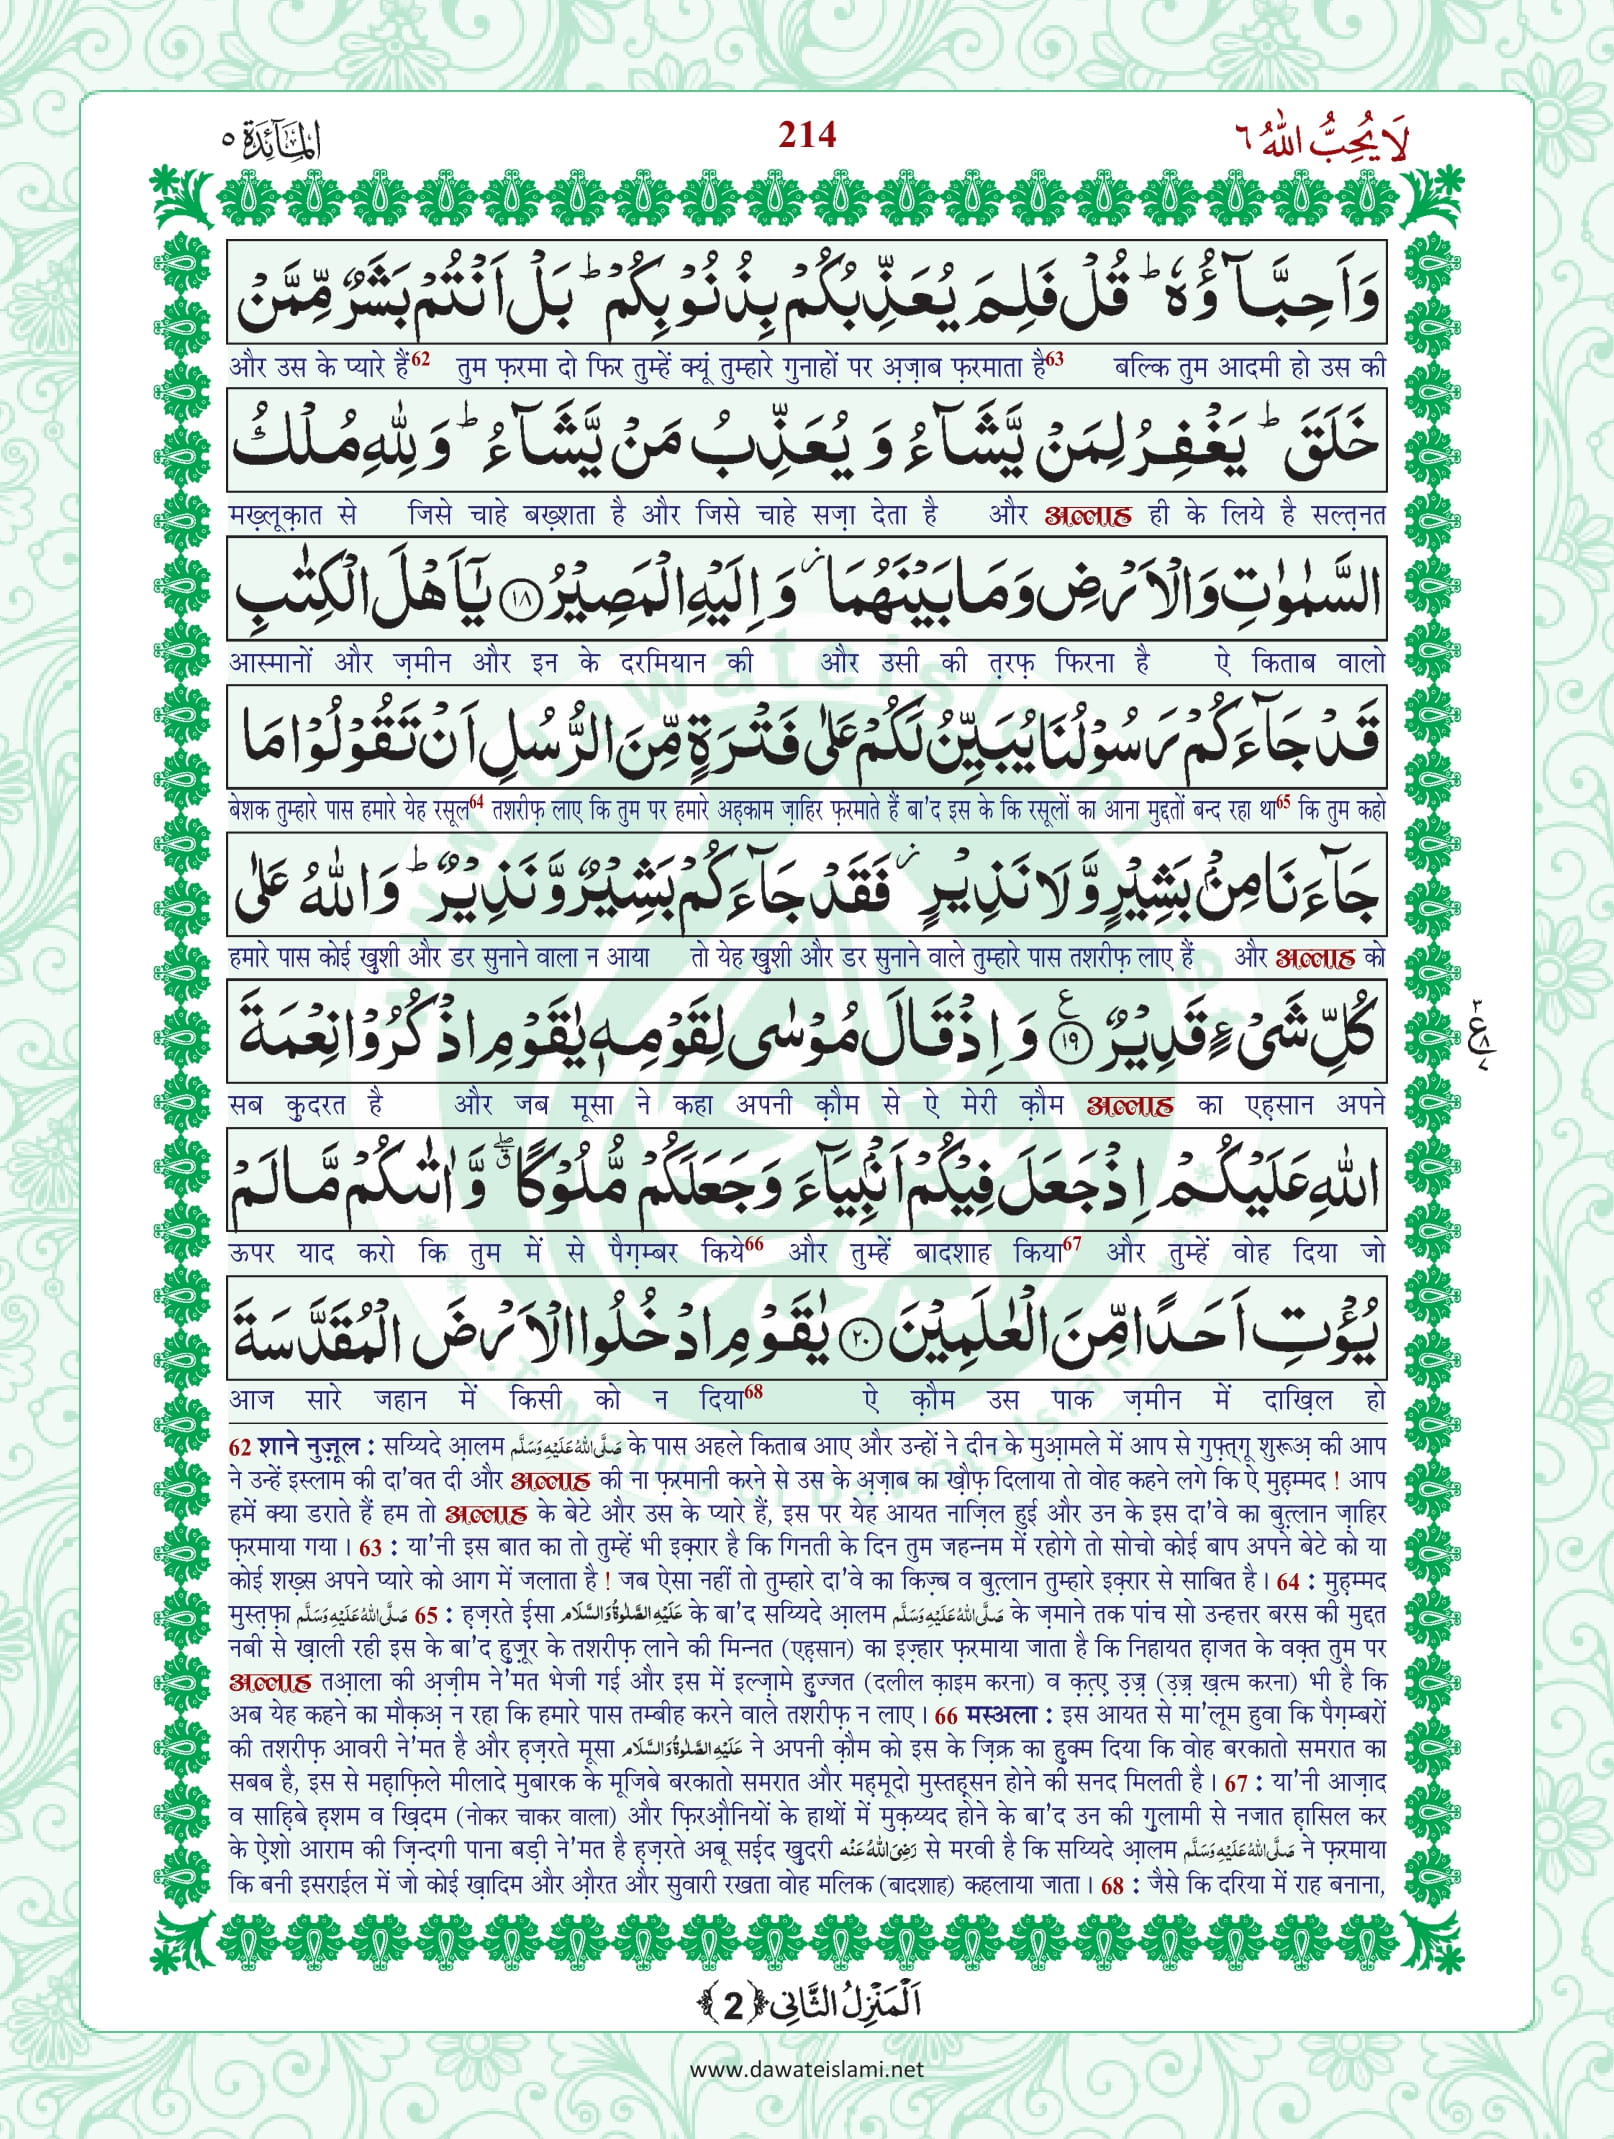 المآئدة ٥
214
لَا يُحِبُّ اللّٰهُ ٦
وَاَحِبَّآؤُهٗ ؕ قُلْ فَلِمَ یُعَذِّبُكُمْ بِذُنُوْبِكُمْ ؕ بَلْ اَنْتُمْ بَشَرٌ مِّمَّنْ
और उस के प्यारे हैं62 तुम फ़रमा दो फिर तुम्हें क्यूं तुम्हारे गुनाहों पर अ़ज़ाब फ़रमाता है63 बल्कि तुम आदमी हो उस की
خَلَقَ ؕ یَغْفِرُ لِمَنْ یَّشَآءُ وَ یُعَذِّبُ مَنْ یَّشَآءُ ؕ وَ لِلّٰهِ مُلْكُ
मख़्लूक़ात से जिसे चाहे बख़्शता है और जिसे चाहे सज़ा देता है और अल्लाह ही के लिये है सल्त़नत
السَّمٰوٰتِ وَ الْاَرْضِ وَ مَا بَیْنَهُمَا ٘ وَ اِلَیْهِ الْمَصِیْرُ ﴿۱۸﴾ یٰۤاَهْلَ الْكِتٰبِ
आस्मानों और ज़मीन और इन के दरमियान की और उसी की त़रफ़ फिरना है ऐ किताब वालो
قَدْ جَآءَكُمْ رَسُوْلُنَا یُبَیِّنُ لَكُمْ عَلٰى فَتْرَةٍ مِّنَ الرُّسُلِ اَنْ تَقُوْلُوْا مَا
बेशक तुम्हारे पास हमारे येह रसूल64 तशरीफ़ लाए कि तुम पर हमारे अह़काम ज़ाहिर फ़रमाते हैं बा'द इस के कि रसूलों का आना मुद्दतों बन्द रहा था65 कि तुम कहो
جَآءَنَا مِنْۢ بَشِیْرٍ وَّ لَا نَذِیْرٍ ٘ فَقَدْ جَآءَكُمْ بَشِیْرٌ وَّ نَذِیْرٌ ؕ وَ اللّٰهُ عَلٰى
हमारे पास कोई ख़ुशी और डर सुनाने वाला न आया तो येह ख़ुशी और डर सुनाने वाले तुम्हारे पास तशरीफ़ लाए हैं और अल्लाह को
كُلِّ شَیْءٍ قَدِیْرٌ ﴿۱۹﴾ ع وَ اِذْ قَالَ مُوْسٰى لِقَوْمِهٖ یٰقَوْمِ اذْكُرُوْا نِعْمَةَ
٣ ع ٨ ٧
सब क़ुदरत है और जब मूसा ने कहा अपनी क़ौम से ऐ मेरी क़ौम अल्लाह का एह़सान अपने
اللّٰهِ عَلَیْكُمْ اِذْ جَعَلَ فِیْكُمْ اَنْۢبِیَآءَ وَ جَعَلَكُمْ مُّلُوْكًا ۗۖ وَّ اٰتٰىكُمْ مَّا لَمْ
ऊपर याद करो कि तुम में से पैग़म्बर किये66 और तुम्हें बादशाह किया67 और तुम्हें वोह दिया जो
یُؤْتِ اَحَدًا مِّنَ الْعٰلَمِیْنَ ﴿۲۰﴾ یٰقَوْمِ ادْخُلُوا الْاَرْضَ الْمُقَدَّسَةَ
आज सारे जहान में किसी को न दिया68 ऐ क़ौम उस पाक ज़मीन में दाख़िल हो
62 शाने नुज़ूल : सय्यिदे आ़लम صَلَّى اللهُ عَلَيْهِ وَسَلَّم के पास अहले किताब आए और उन्हों ने दीन के मुआ़मले में आप से गुफ़्त्गू शुरूअ़ की आप
ने उन्हें इस्लाम की दा'वत दी और अल्लाह की ना फ़रमानी करने से उस के अ़ज़ाब का ख़ौफ़ दिलाया तो वोह कहने लगे कि ऐ मुह़म्मद ! आप
हमें क्या डराते हैं हम तो अल्लाह के बेटे और उस के प्यारे हैं, इस पर येह आयत नाज़िल हुई और उन के इस दा'वे का बुत़्लान ज़ाहिर
फ़रमाया गया । 63 : या'नी इस बात का तो तुम्हें भी इक़्रार है कि गिनती के दिन तुम जहन्नम में रहोगे तो सोचो कोई बाप अपने बेटे को या
कोई शख़्स अपने प्यारे को आग में जलाता है ! जब ऐसा नहीं तो तुम्हारे दा'वे का किज़्ब व बुत़्लान तुम्हारे इक़्रार से साबित है । 64 : मुह़म्मद
मुस्त़फ़ा صَلَّى اللهُ عَلَيْهِ وَسَلَّم 65 : ह़ज़रते ई़सा عَلَيْهِ الصَّلٰوةُ وَالسَّلَام के बा'द सय्यिदे आ़लम صَلَّى اللهُ عَلَيْهِ وَسَلَّم के ज़माने तक पांच सो उन्हत्तर बरस की मुद्दत
नबी से ख़ाली रही इस के बा'द हुज़ूर के तशरीफ़ लाने की मिन्नत (एह़सान) का इज़्हार फ़रमाया जाता है कि निहायत ह़ाजत के वक़्त तुम पर
अल्लाह तआ़ला की अ़ज़ीम ने'मत भेजी गई और इस में इल्ज़ामे हुज्जत (दलील क़ाइम करना) व क़त़्ए उ़ज़्र (उ़ज़्र ख़त्म करना) भी है कि
अब येह कहने का मौक़अ़ न रहा कि हमारे पास तम्बीह करने वाले तशरीफ़ न लाए । 66 मस्अला : इस आयत से मा'लूम हुवा कि पैग़म्बरों
की तशरीफ़ आवरी ने'मत है और ह़ज़रते मूसा عَلَيْهِ الصَّلٰوةُ وَالسَّلَام ने अपनी क़ौम को इस के ज़िक्र का हुक्म दिया कि वोह बरकातो समरात का
सबब है, इस से मह़ाफ़िले मीलादे मुबारक के मूजिबे बरकातो समरात और मह़मूदो मुस्तह़सन होने की सनद मिलती है । 67 : या'नी आज़ाद
व साह़िबे ह़शम व ख़िदम (नोकर चाकर वाला) और फ़िरऔ़नियों के हाथों में मुक़य्यद होने के बा'द उन की गुलामी से नजात ह़ासिल कर
के ऐ़शो आराम की ज़िन्दगी पाना बड़ी ने'मत है ह़ज़रते अबू सई़द ख़ुदरी رَضِىَ اللهُ عَنْه से मरवी है कि सय्यिदे आ़लम صَلَّى اللهُ عَلَيْهِ وَسَلَّم ने फ़रमाया
कि बनी इसराईल में जो कोई ख़ादिम और औ़रत और सुवारी रखता वोह मलिक (बादशाह) कहलाया जाता । 68 : जैसे कि दरिया में राह बनाना,
اَلْمَنْزِلُ الثَّانِى ﴿2﴾
www.dawateislami.net